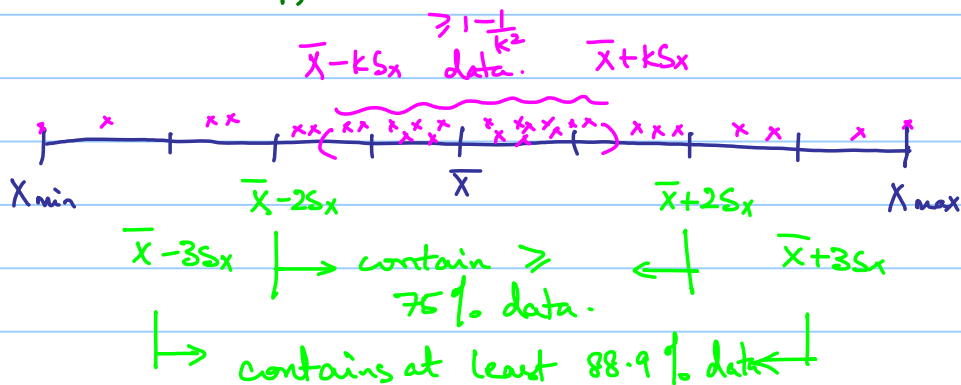 ≥ 1 - 1/k²
X̄ - kSx data. X̄ + kSx
Xmin X̄ Xmax
X̄ - 2Sx X̄ + 2Sx
X̄ - 3Sx contain ≥ X̄ + 3Sx
75% data.
contains at least 88.9% data